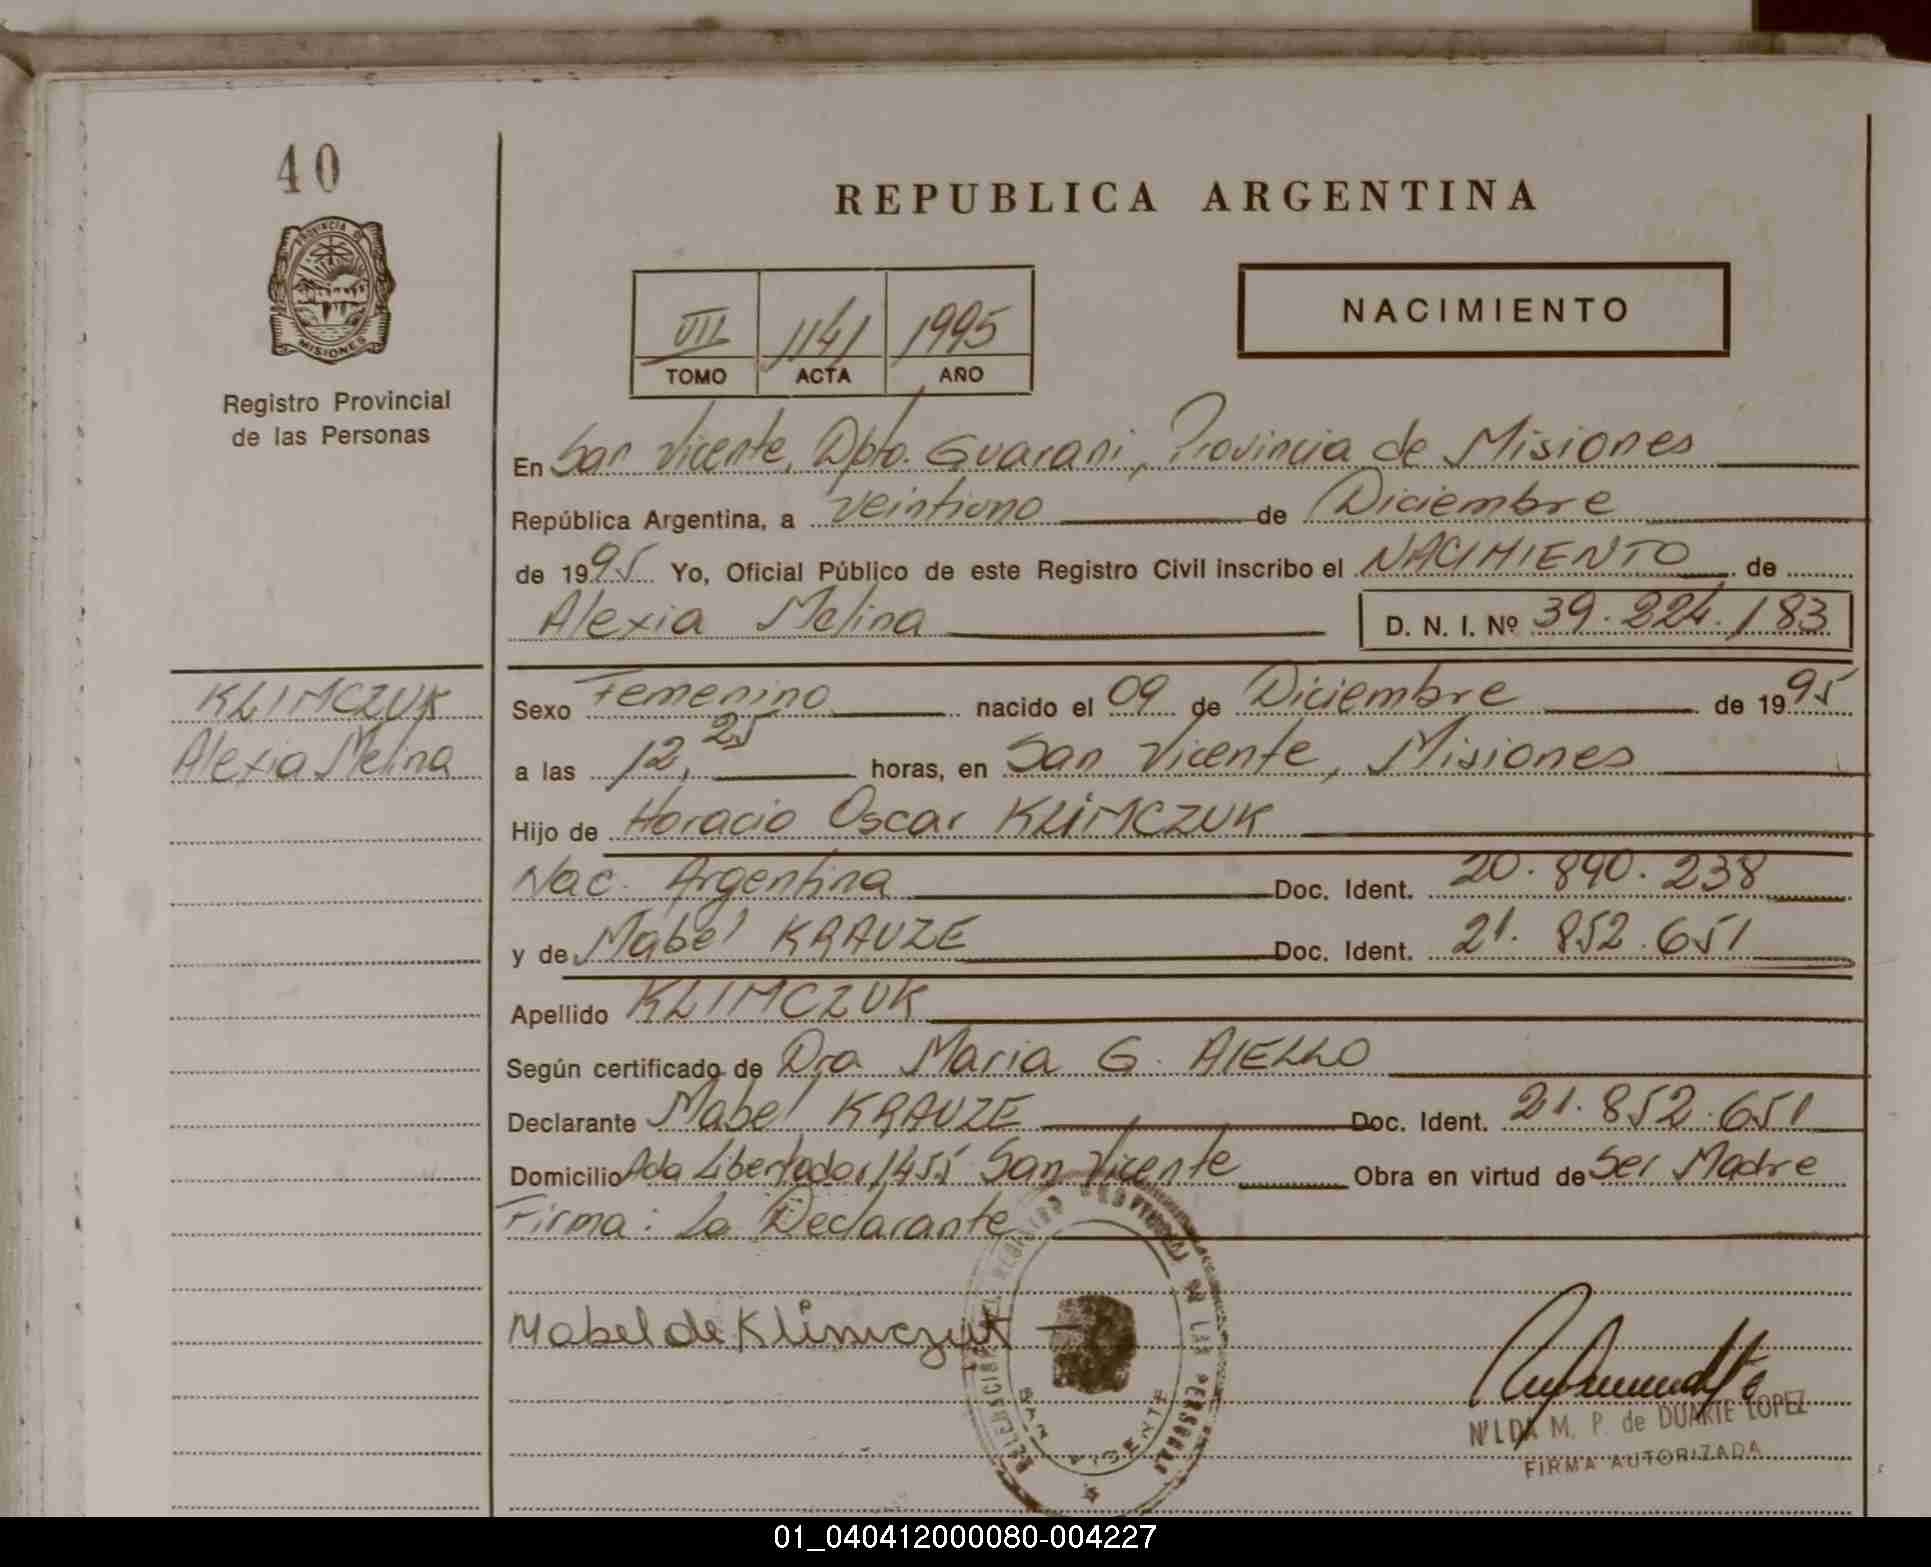 40
PROVINCIA DE
MISIONES
Registro Provincial
de las Personas
REPUBLICA ARGENTINA
VII 1141 1995
TOMO ACTA AÑO
NACIMIENTO
En San Vicente, Dpto. Guarani, Provincia de Misiones
República Argentina, a veintiuno de Diciembre
de 1995 Yo, Oficial Público de este Registro Civil inscribo el NACIMIENTO de
Alexia Melina D. N. I. Nº 39.224.183
KLIMCZUK
Alexia Melina
Sexo Femenino nacido el 09 de Diciembre de 1995
a las 12,25 horas, en San Vicente, Misiones
Hijo de Horacio Oscar KLIMCZUK
Nac. Argentina Doc. Ident. 20.890.238
y de Mabel KRAUZE Doc. Ident. 21.852.651
Apellido KLIMCZUK
Según certificado de Dra Maria G. AIELLO
Declarante Mabel KRAUZE Doc. Ident. 21.852.651
Domicilio Avda Libertador 1455 San Vicente Obra en virtud de Ser Madre
Firma: La Declarante
Mabel de Klimczuk
REGISTRO PROVINCIAL DE LAS PERSONAS
SAN VICENTE
NILDA M. P. de DUARTE LOPEZ
FIRMA AUTORIZADA
01_040412000080-004227